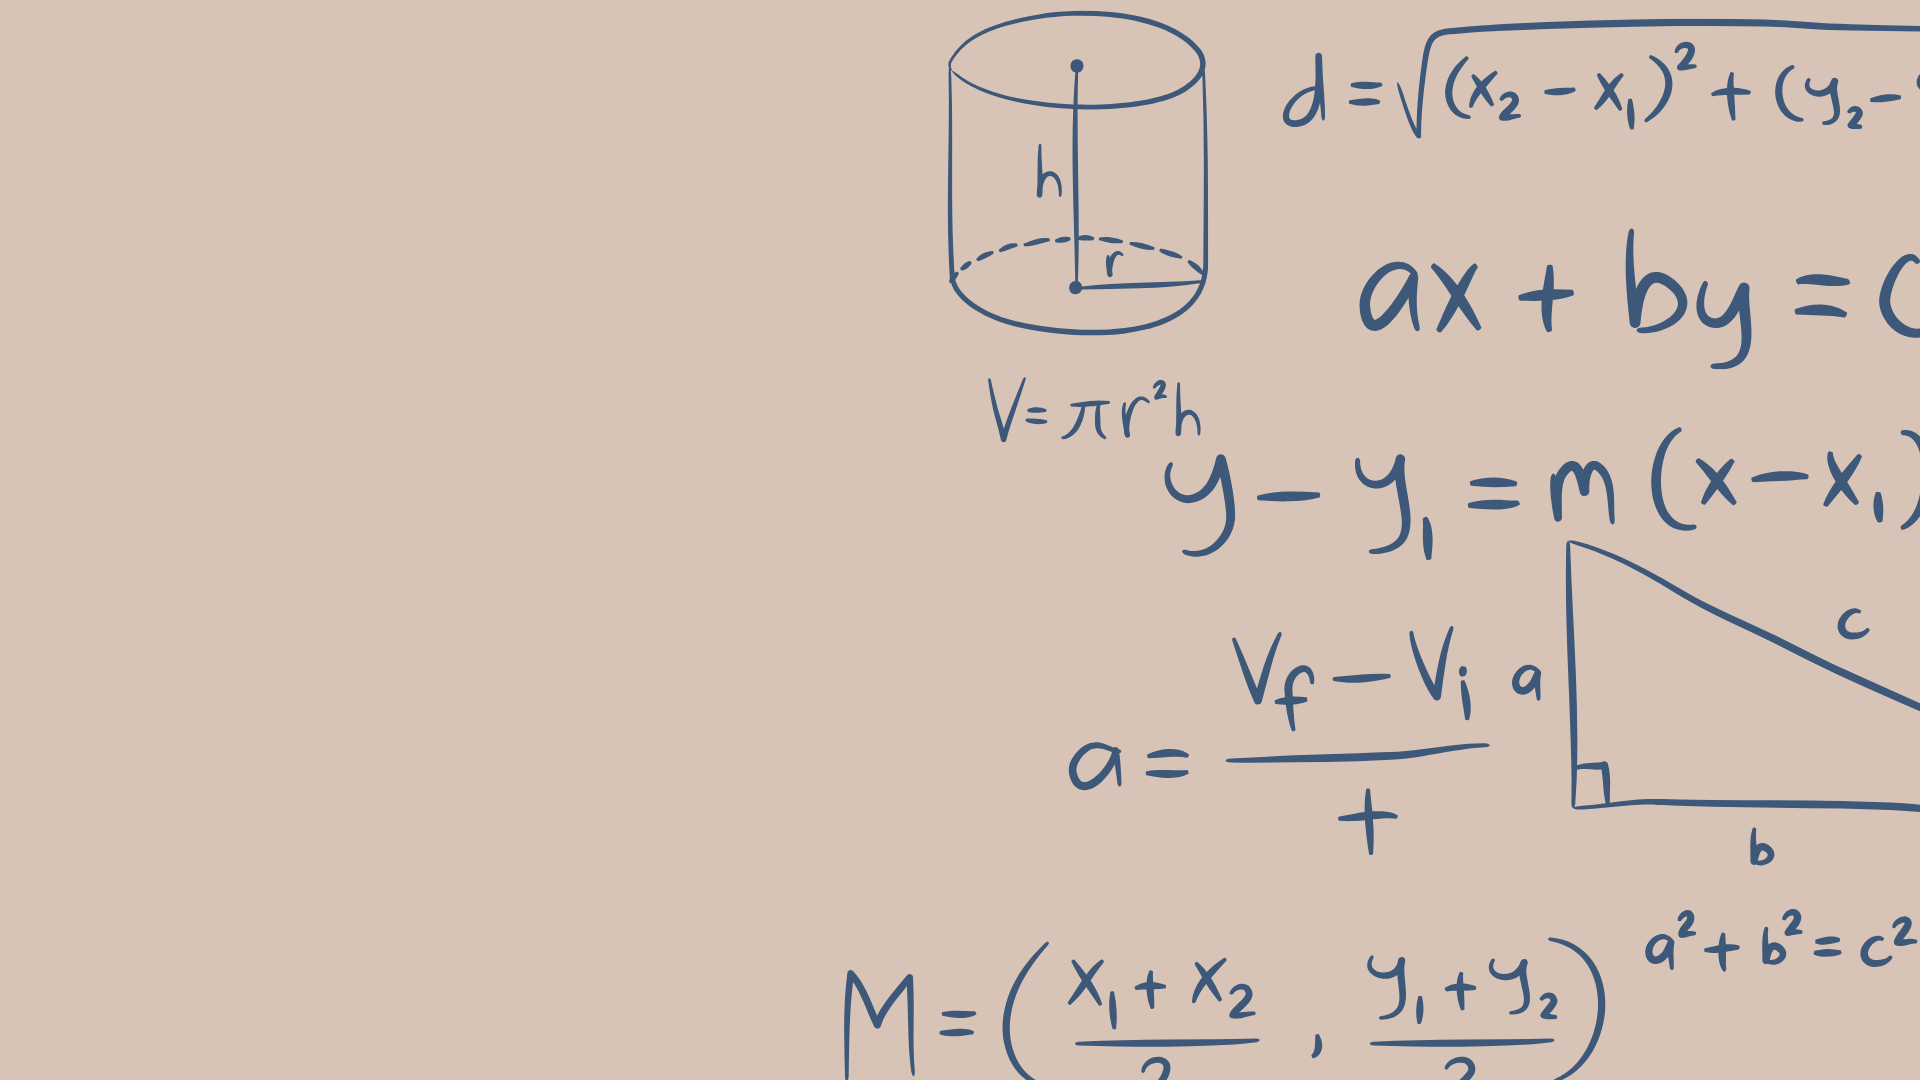 h
r
V = πr²h
d = √(x₂ − x₁)² + (y₂ −
ax + by = c
y − y₁ = m (x − x₁)
a = (V_f − V_i) / t
a
c
b
a² + b² = c²
M = ((x₁ + x₂) / 2 , (y₁ + y₂) / 2)